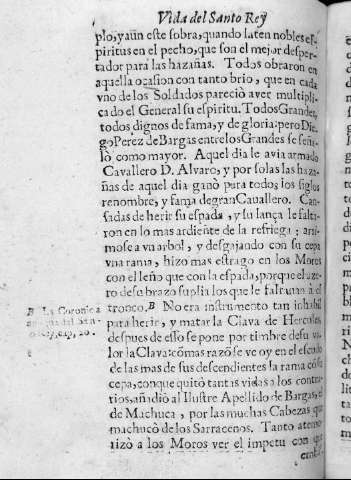 Vida del Santo Rey
plo, y aun este sobra, quando laten nobles es-
piritus en el pecho, que son el mejor desper-
tador para las hazañas. Todos obraron en
aquella ocasion con tanto brio, que en cada
vno de los Soldados pareciò aver multipli-
cado el General su espiritu. Todos Grandes,
todos dignos de fama, y de gloria: pero Die-
go Perez de Bargas entre los Grandes se señа-
lò como mayor. Aquel dia le avia armado
Cavallero D. Alvaro, y por solas las haza-
ñas de aquel dia ganò para todos los siglos
renombre, y fama de gran Cauallero. Can-
sadas de herir su espada, y su lança le falta-
ron en lo mas ardiente de la refriega; arri-
mose a vn arbol, y desgajando con su cepa
vna rama, hizo mas estrago en los Moros
con el leño que con la espada, porque el aze-
ro de su brazo suplia los que le faltauan à el
tronco. B No era instrumento tan inhabil
para herir, y matar la Clava de Hercules,
despues de esso se pone por timbre de su va-
lor la Clava: còmas razõ se ve oy en el escudo
de las mas de sus descendientes la rama cõ su
cepa, conque quitò tantas vidas a los contra-
rios, añadiò al Ilustre Apellido de Bargas, el
de Machuca, por las muchas Cabezas que
machucò de los Sarracenos. Tanto atemo-
rizò a los Moros ver el impetu con que
B La Coronica